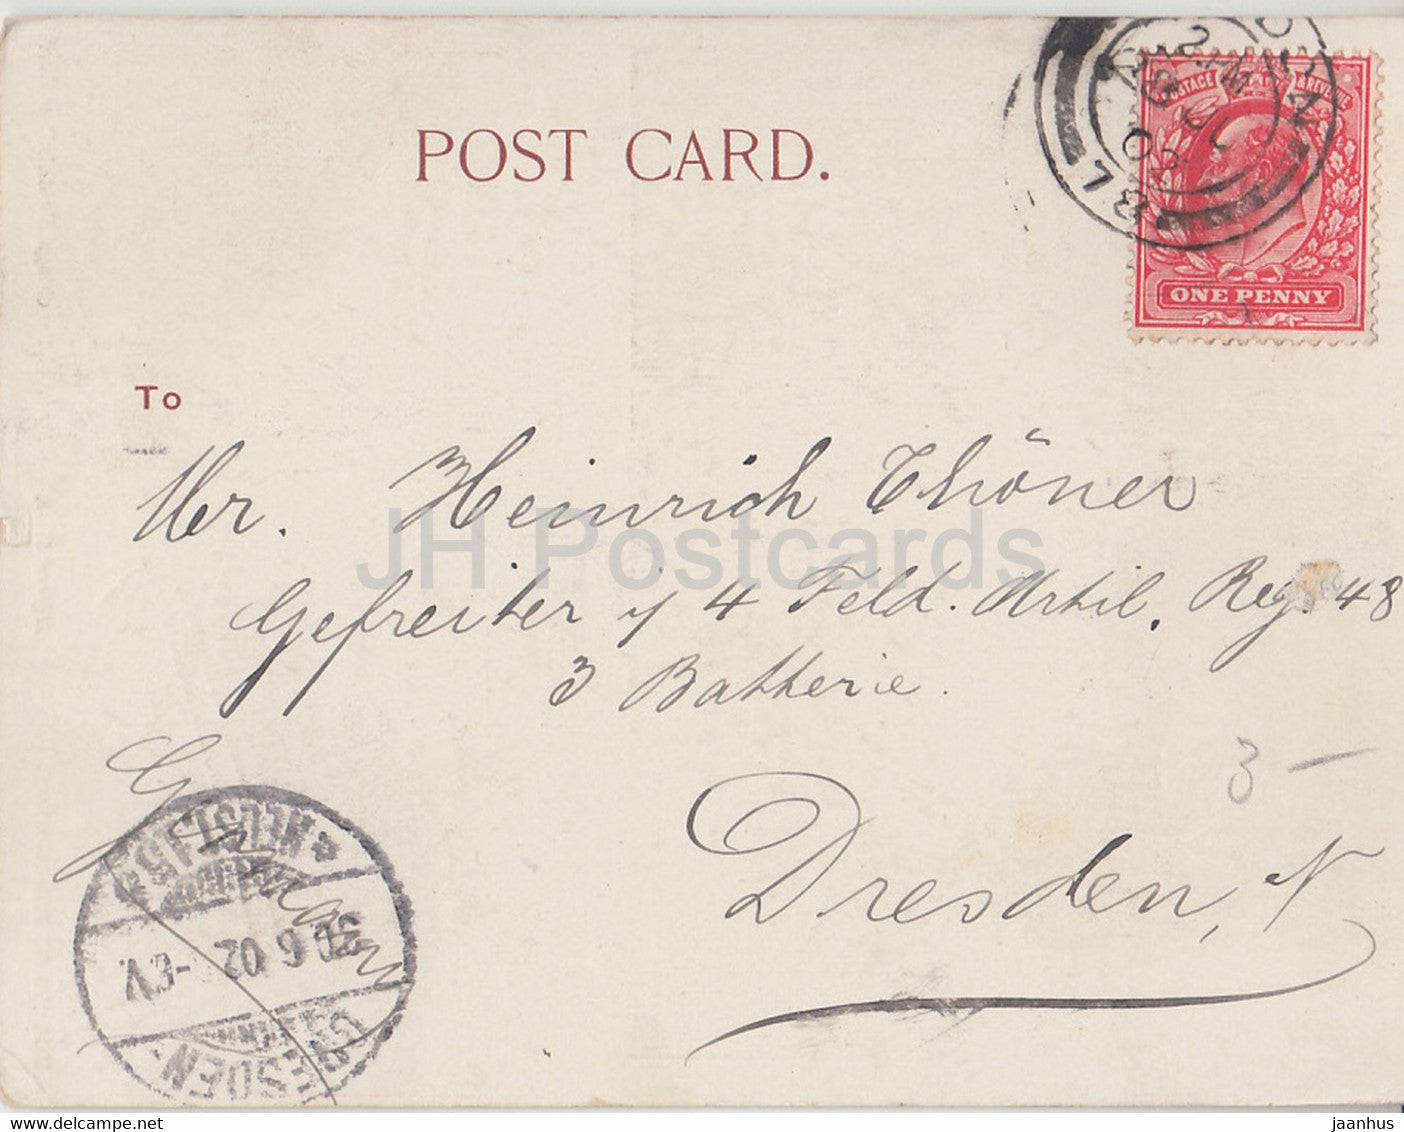 POST CARD.
POSTAGE & REVENUE
ONE PENNY
2
28 JU
02
To
Mr. Heinrich Thöner
Gefreiter 4 Feld. Artil. Reg. 48
3 Batterie.
Dresden, N
Germany
3 -
30 6 02 - V.
DRESDEN
JH Postcards
www.delcampe.net
jaanhus